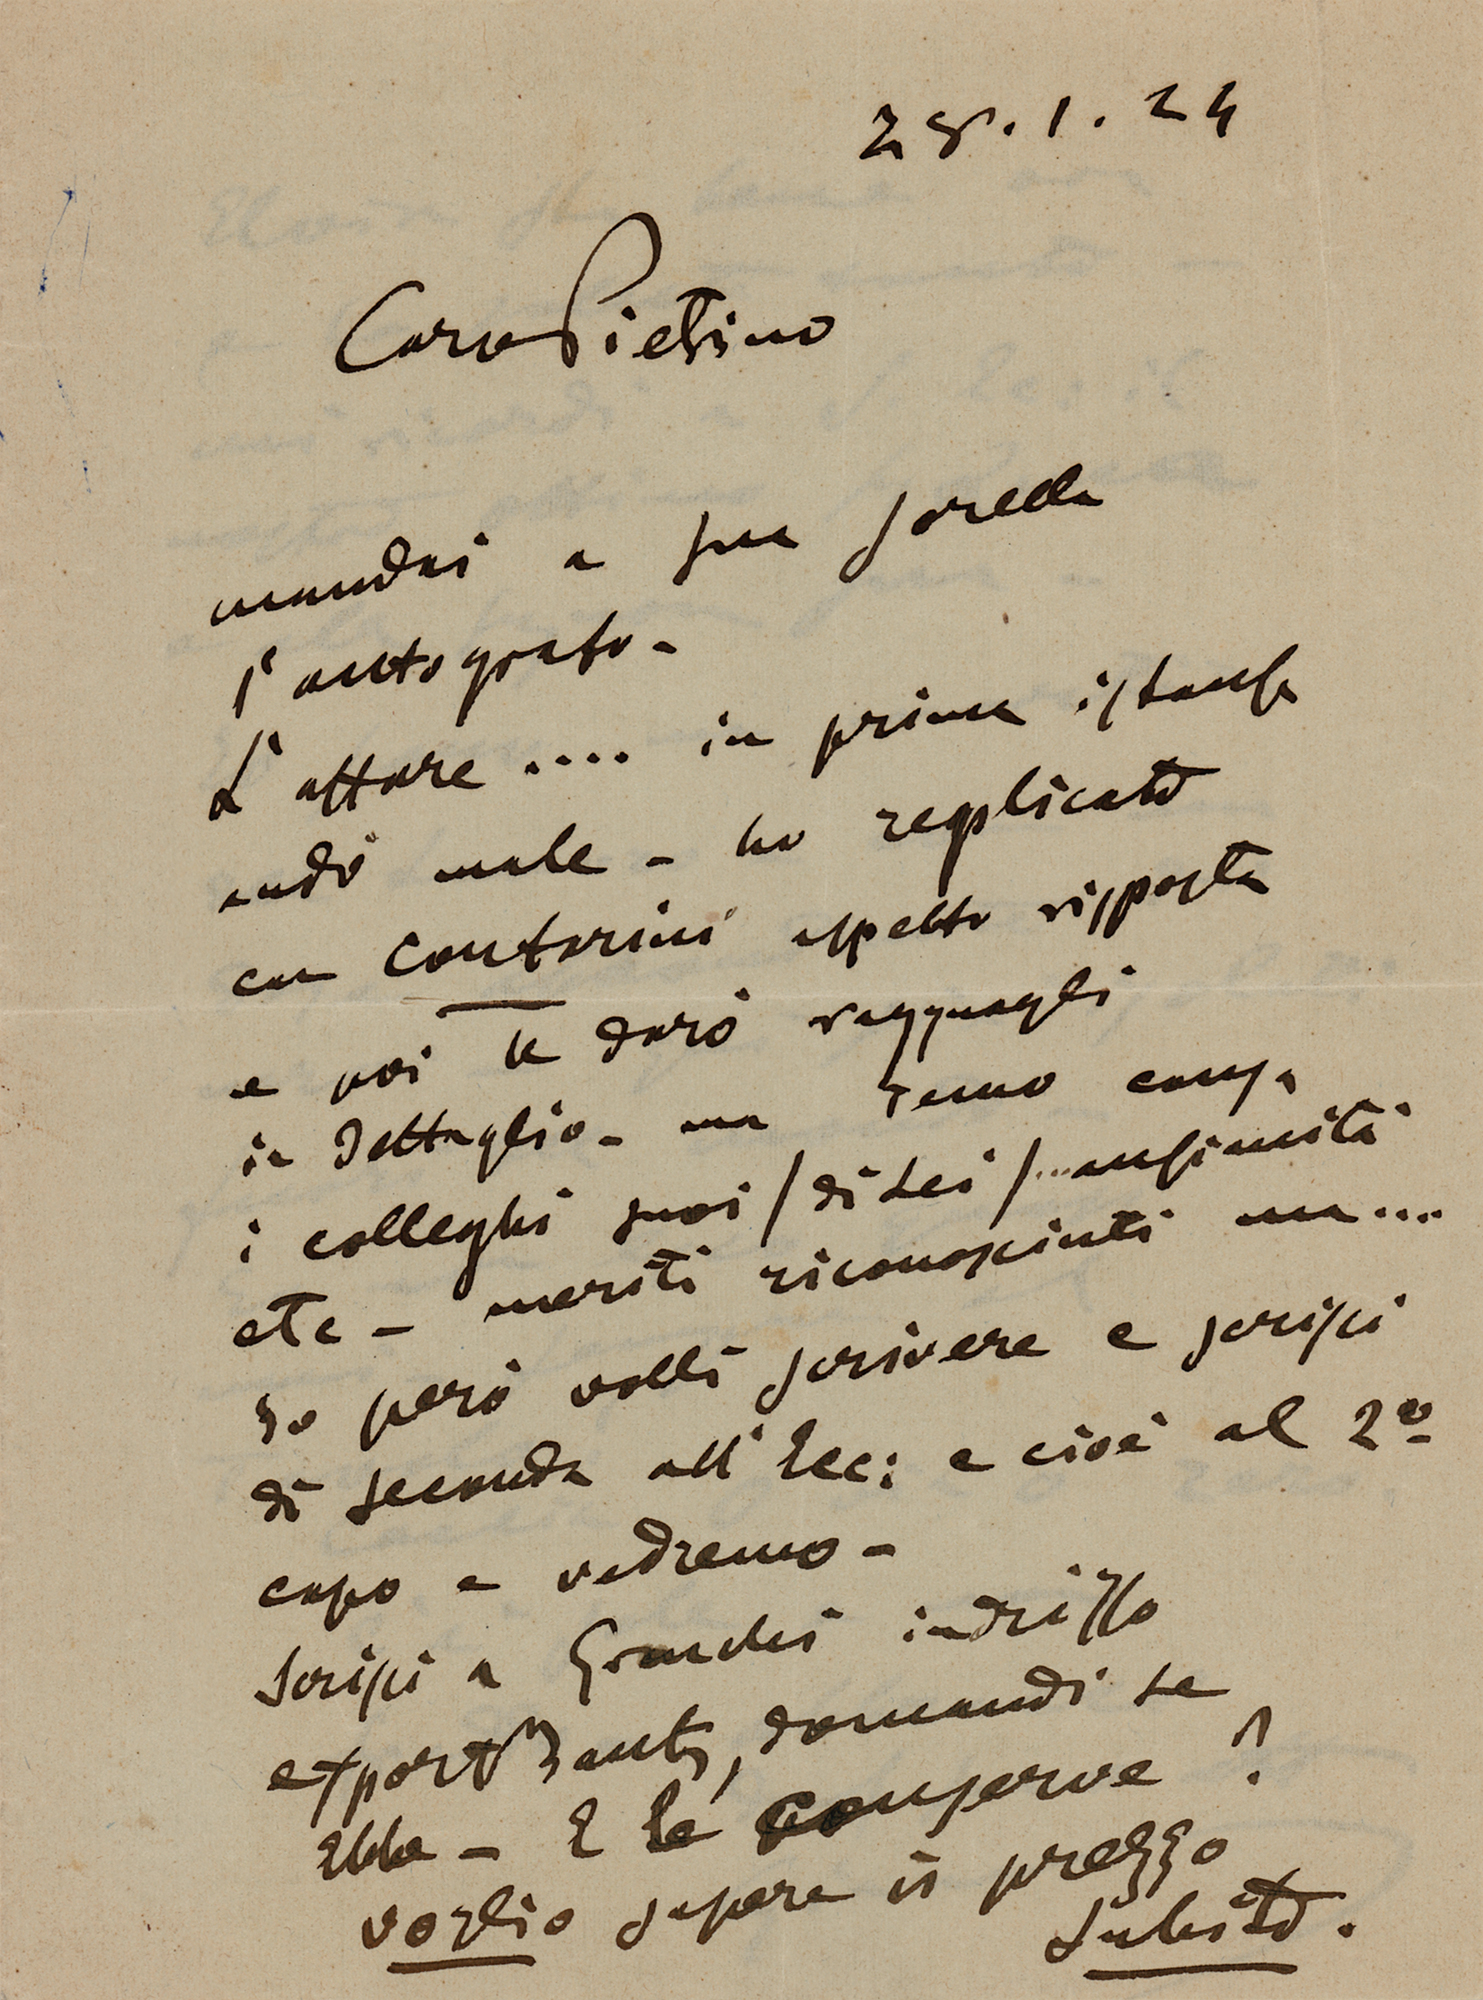 28.1.24
Caro Pietino
mandai a sua sorella
l'autografo -
L'affare .... in prima istanza
andò male - ho replicato
con Contarini aspetto risposta
e poi le darò ragguagli
in dettaglio - ma temo
i colleghi suoi / di Lei / ... anzianità
etc - meriti riconosciuti ma ....
Io però volli scrivere e scrissi
di seconda all' Ecc: e cioè al 2º
capo e vedremo -
Scrissi a Grandi indirizzo
export, domandi se
Ebbe - E le conserve?
voglio sapere il prezzo
subito.